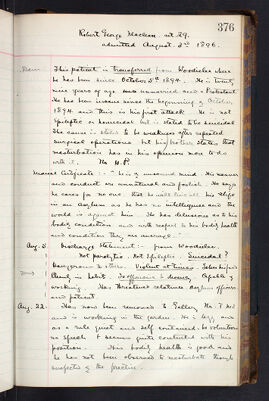 376
Robert George Maclean aet 29.
admitted August 3rd 1896.
This patient is transferred from Woodielee where
he has been since October 5th 1894. He is twenty
nine years of age and unmarried and a Protestant.
He has been insane since the beginning of October
1894 and this is his first attack. He is not
epileptic or homicidal but is stated to be suicidal.
The cause is stated to be weakness after repeated
surgical operations but his mother states that
masturbation has in his opinion more to do
with it. No H.P.
Medical Certificate :- He is of unsound mind. His manner
and conduct are unnatural and foolish. He says
he cares for no one, that he will his
in an asylum as he has no intelligence and the
world is against him. He has delusions as to his
bodily condition and with respect to his bodily health
and condition they are
Aug. 3 Discharge Statement :- from Woodielee.
Not paralytic. Not Epileptic. Suicidal?
Dangerous to others. Violent at times.
Cleanly in habits. Capable of
working. Has threatened violence asylum officers
and patient.
Aug. 22. Has now been removed to Gallery No 7
and is working in the garden. He is lazy and
as a rule quiet and self contained. He volunteers
no speech & seems quite contented with his
position. His bodily health is good and
he has not been observed to masturbate though
suspected of the practice.